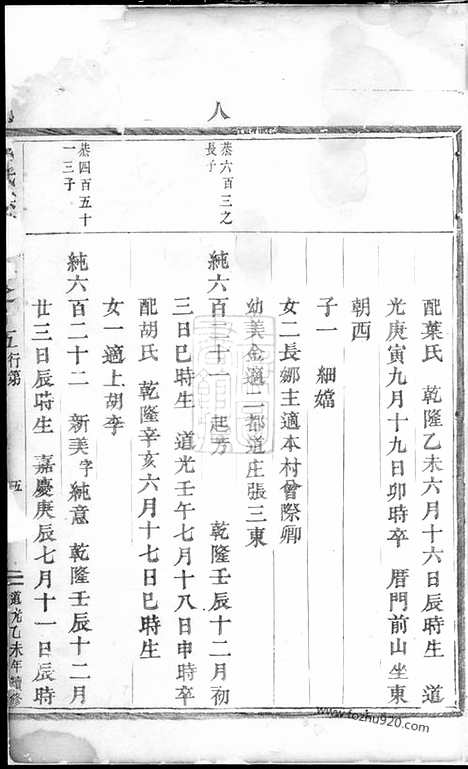 八
配葉氏　乾隆乙未六月十六日辰時生　道
光庚寅九月十九日卯時卒　厝門前山坐東
朝西
子一　細嬉
女二長娜主適本村曾際卿
幼美金適二都道庄張三東
恭六百三之
長子
純六百二十一　起芳　乾隆壬辰十二月初
三日巳時生　道光壬午七月十八日申時卒
配胡氏　乾隆辛亥六月十七日巳時生
女一適上胡李
恭四百五十
一三子
純六百二十二　新美字純意　乾隆壬辰十二月
廿三日辰時生　嘉慶庚辰七月十一日辰時
行第
五
道光乙未年續修
www.tozhu920.com